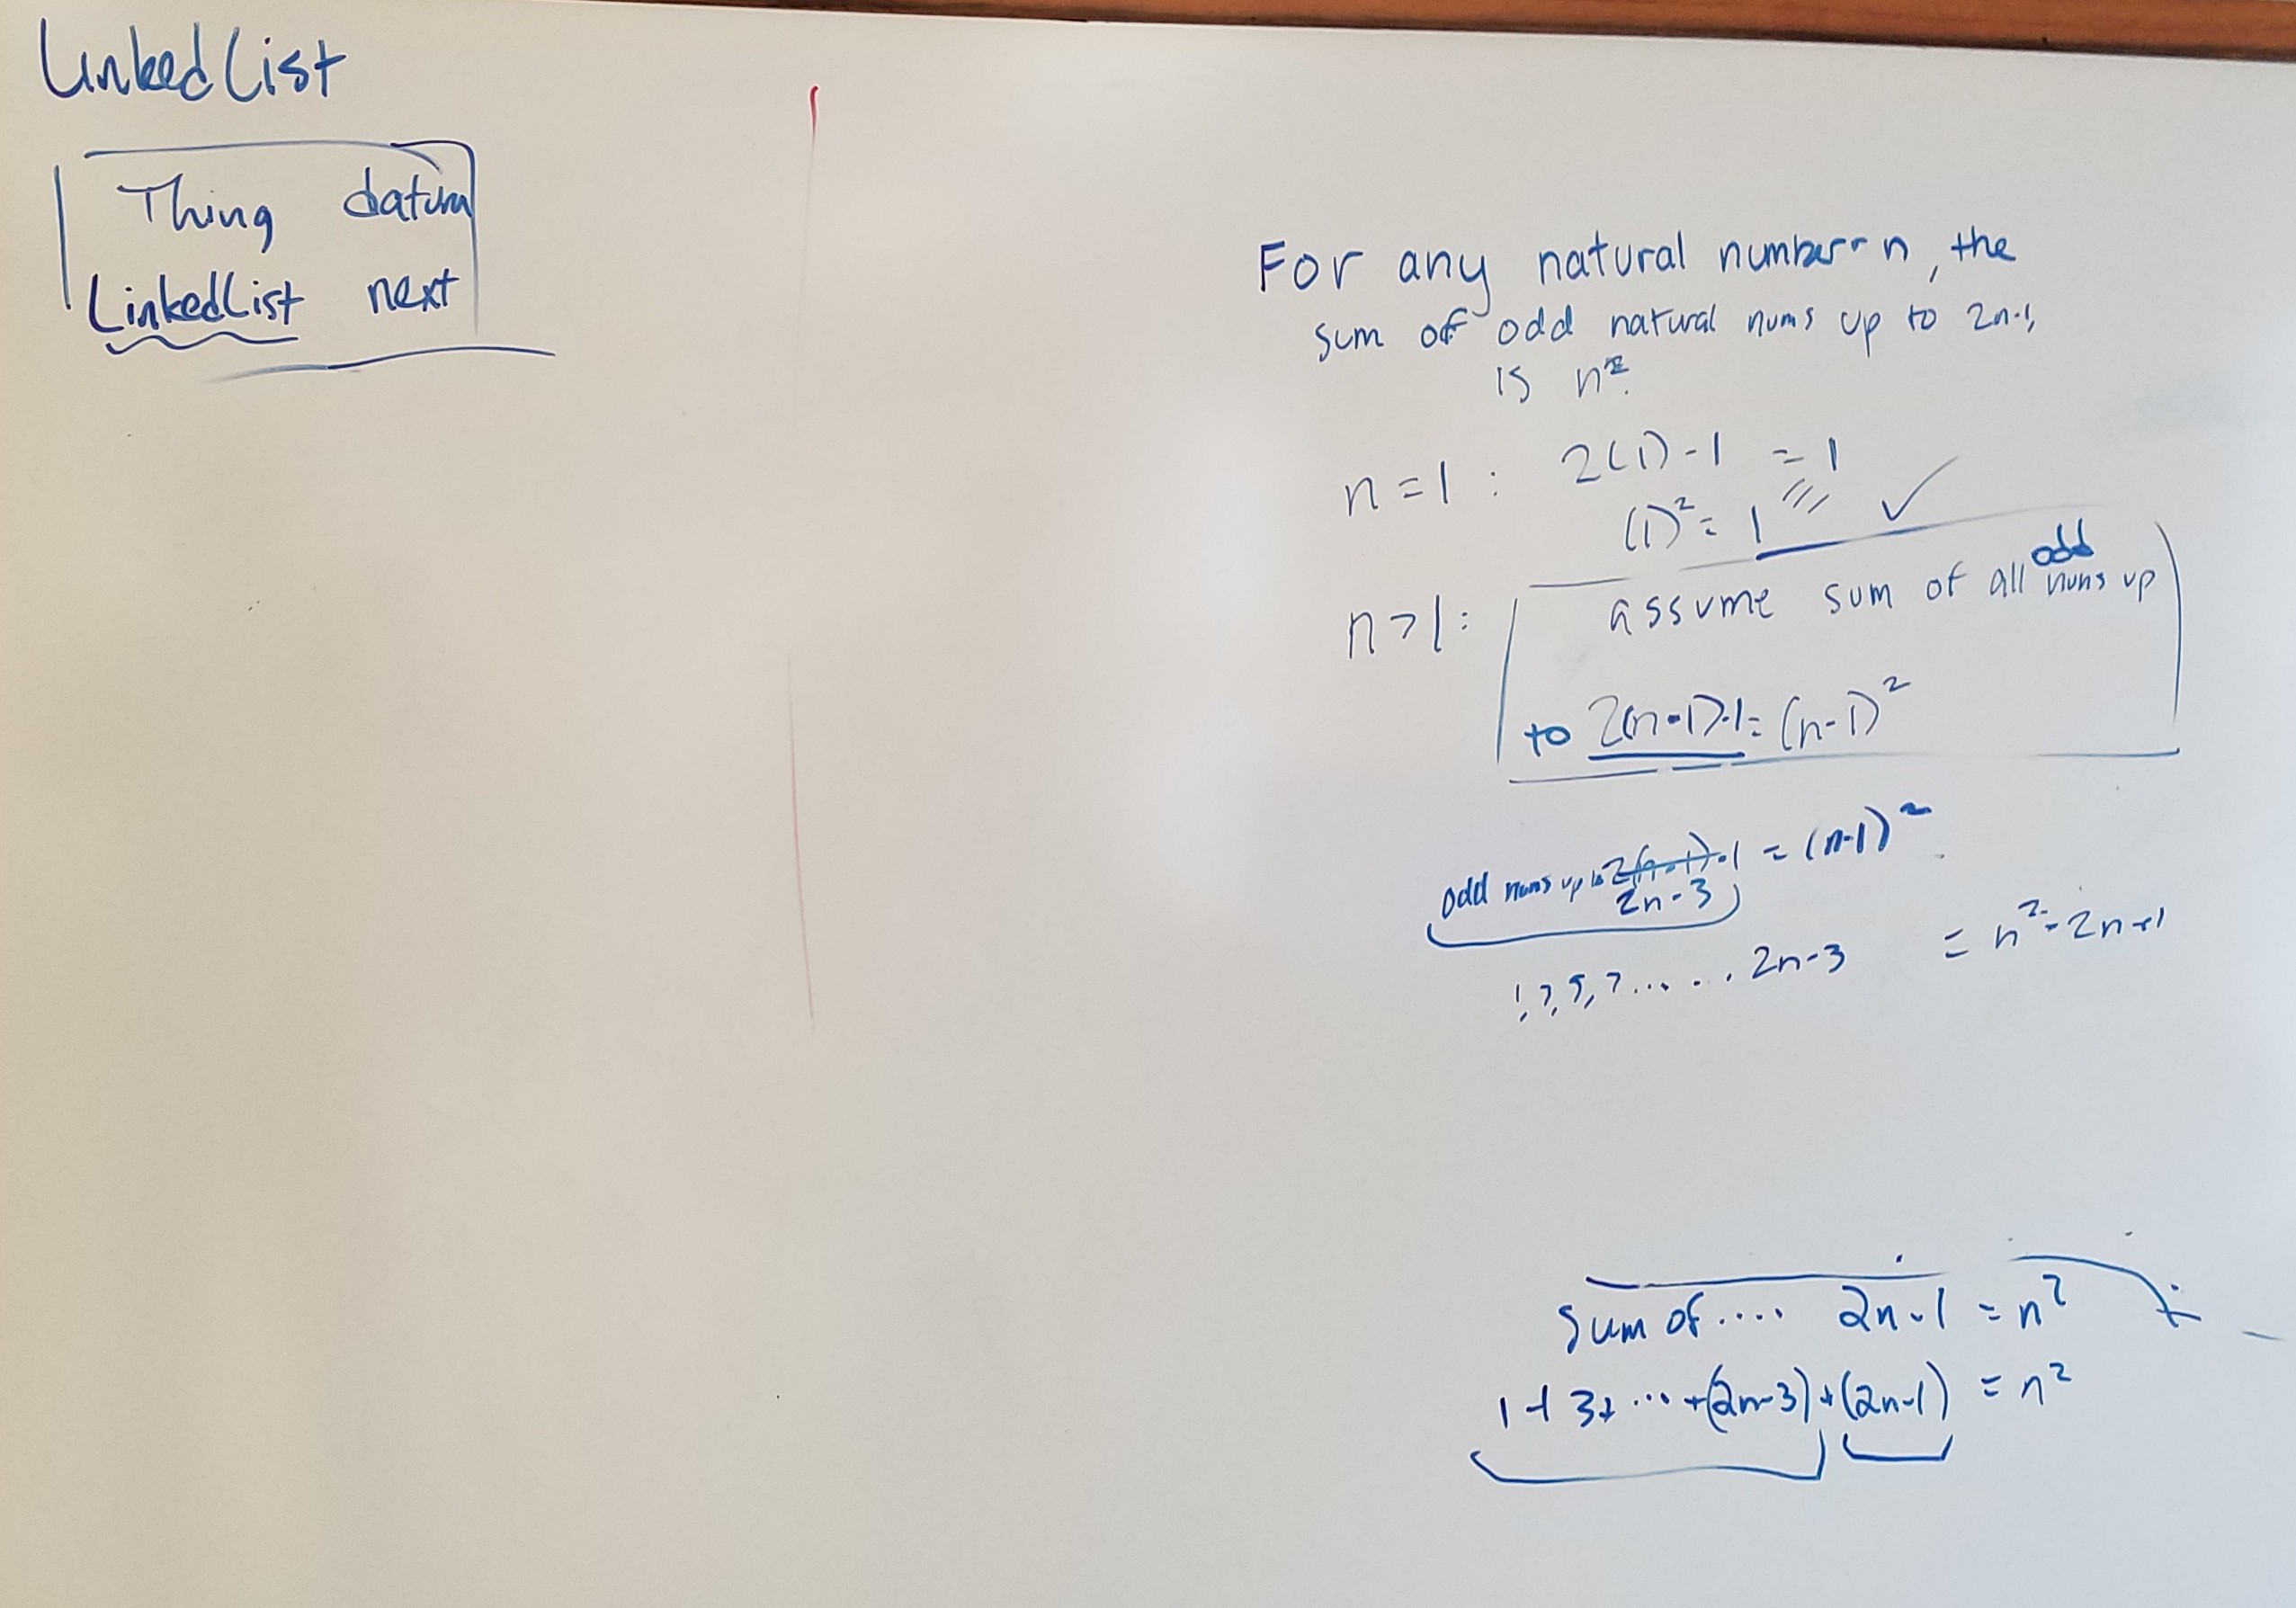 LinkedList
Thing datum
LinkedList next
For any natural number n, the
sum of odd natural nums up to 2n-1,
is n².
n = 1 : 2(1) - 1 = 1
(1)² = 1 ✓
n > 1 : assume sum of all odd nums up
to 2(n-1)-1 = (n-1)²
odd nums up to 2(n-1)-1 = (n-1)²
2n-3
1, 3, 5, 7 ...... 2n-3 = n²-2n+1
sum of .... 2n-1 = n²
1 + 3 + ... + (2n-3) + (2n-1) = n²